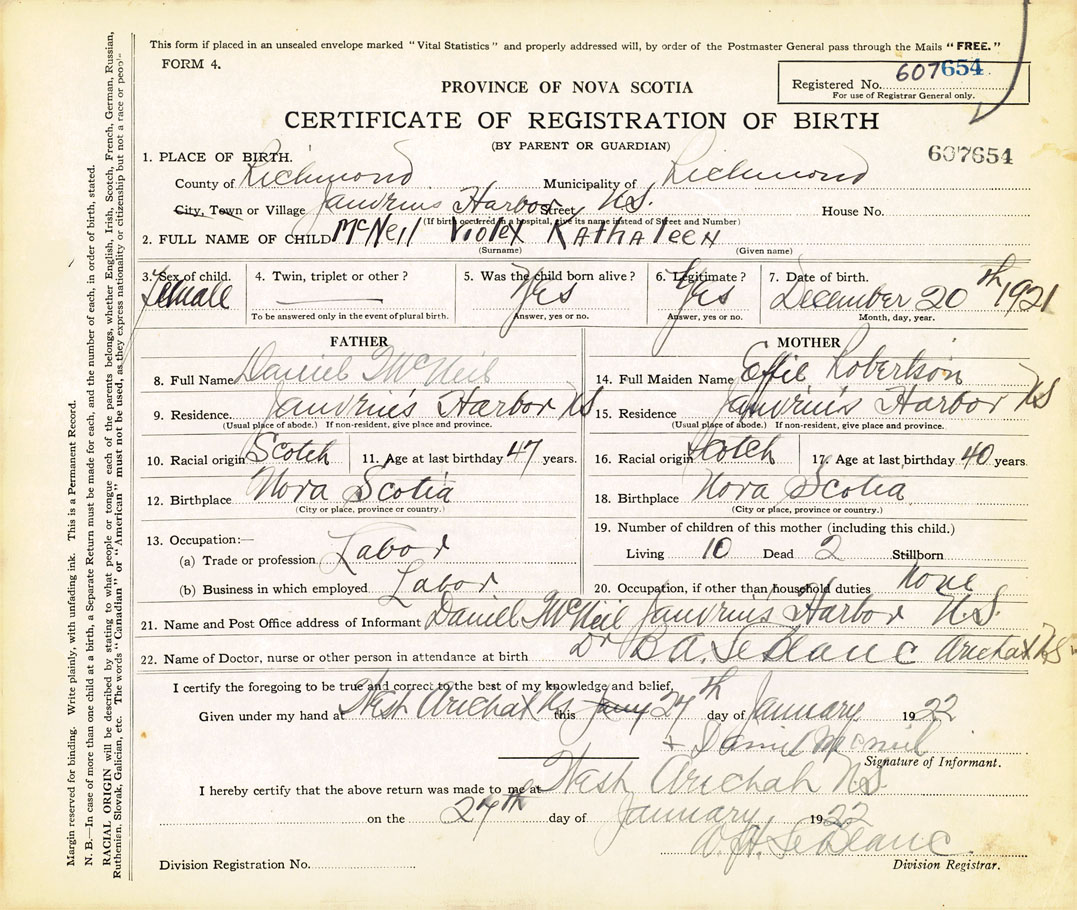 This form if placed in an unsealed envelope marked "Vital Statistics" and properly addressed will, by order of the Postmaster General pass through the Mails "FREE."
FORM 4.
Registered No. 607654
For use of Registrar General only.
PROVINCE OF NOVA SCOTIA
CERTIFICATE OF REGISTRATION OF BIRTH
(BY PARENT OR GUARDIAN)
607654
1. PLACE OF BIRTH.
County of Richmond Municipality of Richmond
City, Town or Village Janvrins Harbor Street N.S. House No.
(If birth occurred in a hospital, give its name instead of Street and Number)
2. FULL NAME OF CHILD McNeil Violet Kathaleen
(Surname) (Given name)
3. Sex of child. 4. Twin, triplet or other? 5. Was the child born alive? 6. Legitimate? 7. Date of birth.
Female Yes Yes December 20th 1921
To be answered only in the event of plural birth. Answer, yes or no. Answer, yes or no. Month, day, year.
FATHER MOTHER
8. Full Name Daniel McNeil 14. Full Maiden Name Effie Robertson
9. Residence. Janvrin's Harbor NS 15. Residence Janvrin's Harbor NS
(Usual place of abode.) If non-resident, give place and province. (Usual place of abode.) If non-resident, give place and province.
10. Racial origin Scotch 11. Age at last birthday 47 years. 16. Racial origin Scotch 17. Age at last birthday 40 years
12. Birthplace Nova Scotia 18. Birthplace Nova Scotia
(City or place, province or country.) (City or place, province or country.)
13. Occupation:— 19. Number of children of this mother (including this child.)
(a) Trade or profession Labor Living 10 Dead 2 Stillborn
(b) Business in which employed Labor 20. Occupation, if other than household duties None
21. Name and Post Office address of Informant Daniel McNeil Janvrins Harbor N.S.
22. Name of Doctor, nurse or other person in attendance at birth Dr B.A. LeBlanc Arichat NS
I certify the foregoing to be true and correct to the best of my knowledge and belief,
Given under my hand at West Arichat NS this Jany 24th day of January 1922
+ Daniel McNeil
Signature of Informant.
I hereby certify that the above return was made to me at West Arichat N.S.
on the 24th day of January 1922
LeBlanc
Division Registration No. Division Registrar.
Margin reserved for binding. Write plainly, with unfading ink. This is a Permanent Record.
N. B.—In case of more than one child at a birth, a Separate Return must be made for each, and the number of each, in order of birth, stated.
RACIAL ORIGIN will be described by stating to what people or tongue each of the parents belongs, whether English, Irish, Scotch, French, German, Russian,
Ruthenian, Slovak, Galician, etc. The words "Canadian" or "American" must not be used, as they express nationality or citizenship but not a race or people